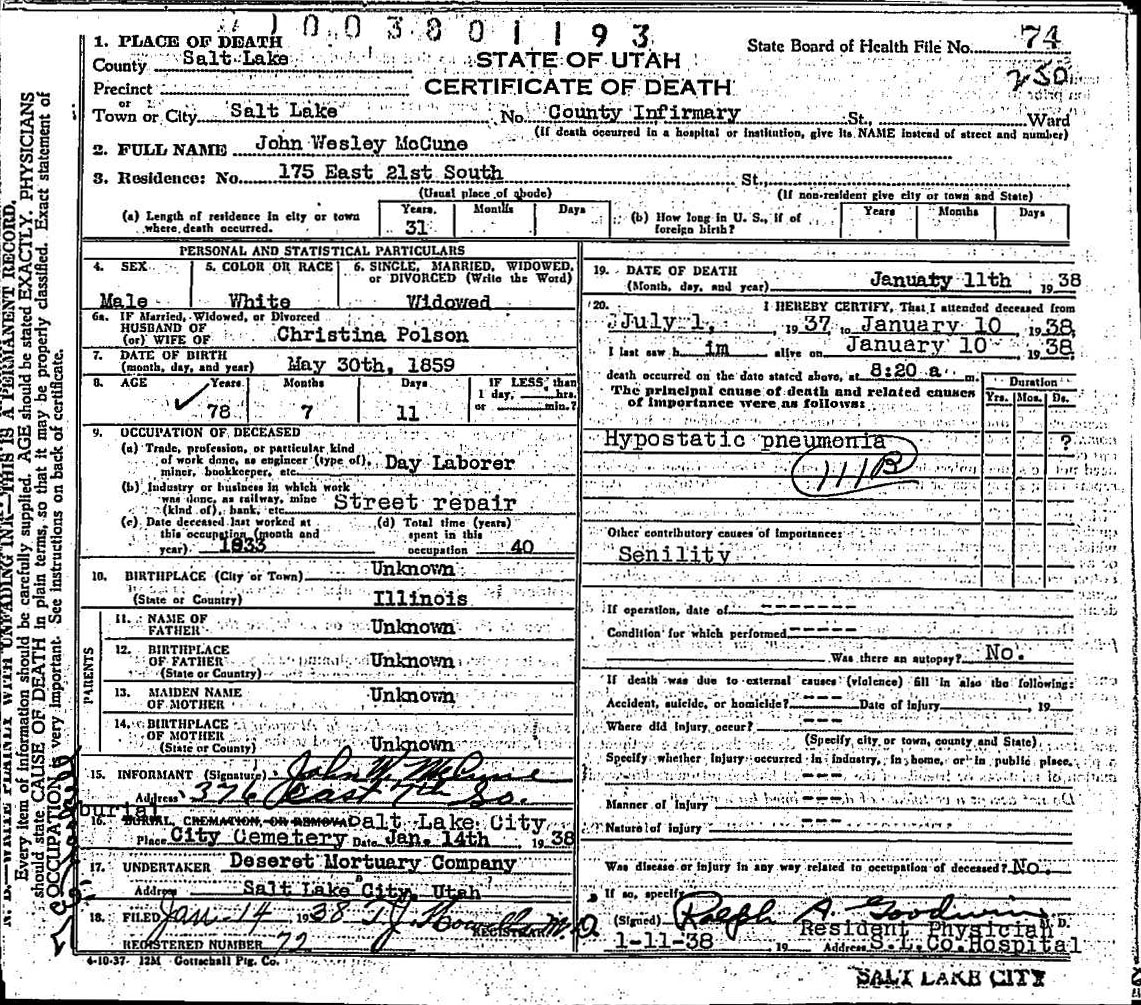 1003801193
State Board of Health File No. 74
250
1. PLACE OF DEATH
County Salt Lake
STATE OF UTAH
Precinct
CERTIFICATE OF DEATH
or
Town or City Salt Lake No. County Infirmary St., Ward
(If death occurred in a hospital or institution, give its NAME instead of street and number)
2. FULL NAME John Wesley McCune
3. Residence: No. 175 East 21st South St.
(Usual place of abode) (If non-resident give city or town and State)
(a) Length of residence in city or town where death occurred. Years 31 Months Days
(b) How long in U. S., if of foreign birth? Years Months Days
PERSONAL AND STATISTICAL PARTICULARS
4. SEX Male
5. COLOR OR RACE White
6. SINGLE, MARRIED, WIDOWED, or DIVORCED (Write the Word) Widowed
6a. IF Married, Widowed, or Divorced
HUSBAND OF
(or) WIFE OF Christina Polson
7. DATE OF BIRTH
(month, day, and year) May 30th, 1859
8. AGE Years 78 Months 7 Days 11 IF LESS than 1 day, hrs. or min.?
9. OCCUPATION OF DECEASED
(a) Trade, profession, or particular kind
of work done, as engineer (type of),
miner, bookkeeper, etc. Day Laborer
(b) Industry or business in which work
was done, as railway, mine
(kind of), bank, etc. Street repair
(c) Date deceased last worked at
this occupation (month and
year) 1933
(d) Total time (years)
spent in this
occupation 40
10. BIRTHPLACE (City or Town) Unknown
(State or Country) Illinois
PARENTS
11. NAME OF
FATHER Unknown
12. BIRTHPLACE
OF FATHER Unknown
(State or Country)
13. MAIDEN NAME
OF MOTHER Unknown
14. BIRTHPLACE
OF MOTHER
(State or County) Unknown
15. INFORMANT (Signature) John W. McCune
Address 376 East 7th So.
burial
16. BURIAL, CREMATION, OR REMOVAL Salt Lake City
Place City Cemetery Date Jan. 14th 1938
17. UNDERTAKER Deseret Mortuary Company
Address Salt Lake City, Utah
18. FILED Jan-14 1938 T.J. M.D.
REGISTRAR
REGISTERED NUMBER 72
4-10-37- 12M Gottschall Ptg. Co.
19. DATE OF DEATH
(Month, day, and year) January 11th, 1938
20. I HEREBY CERTIFY, That I attended deceased from
July 1, 1937 to January 10, 1938
I last saw him alive on January 10, 1938
death occurred on the date stated above, at 8:20 a m.
The principal cause of death and related causes
of importance were as follows:
Duration
Yrs. Mos. Ds.
Hypostatic pneumonia ?
111B
Other contributory causes of importance:
Senility
If operation, date of -------
Condition for which performed -----
Was there an autopsy? No.
If death was due to external causes (violence) fill in also the following:
Accident, suicide, or homicide? --- Date of Injury , 19
Where did injury occur? ---
(Specify city or town, county and State)
Specify whether injury occurred in industry, in home, or in public place.
---
Manner of injury ---
Nature of injury ---
Was disease or injury in any way related to occupation of deceased? No.
If so, specify
(Signed) Ralph A. Goodwin M. D.
Resident Physician
1-11-38 19 Address S.L.Co.Hospital
SALT LAKE CITY
N. B.—WRITE PLAINLY WITH UNFADING INK—THIS IS A PERMANENT RECORD.
Every item of information should be carefully supplied. AGE should be stated EXACTLY. PHYSICIANS
should state CAUSE OF DEATH in plain terms, so that it may be properly classified. Exact statement of
OCCUPATION is very important. See instructions on back of certificate.